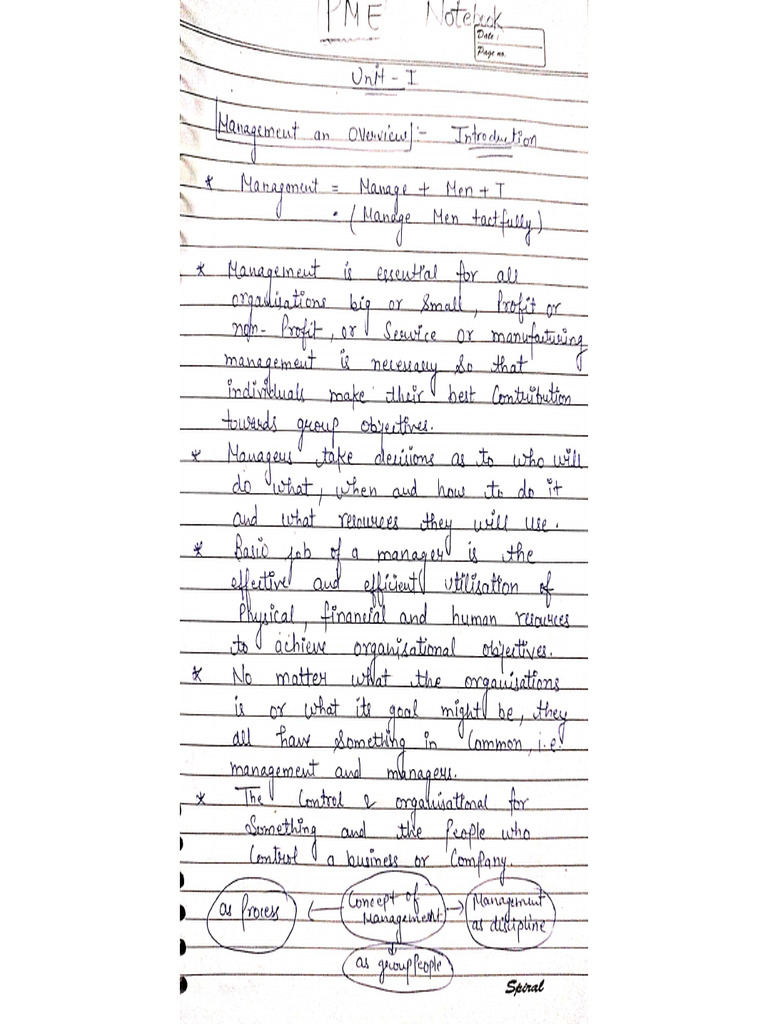 PME Notebook
Date :
Page no.
Unit - I
Management an Overview :- Introduction
* Managment = Manage + Men + T
• (Manage Men tactfully)
* Management is essential for all
organisations big or small, Profit or
non-Profit, or Service or manufacturing
management is necessary so that
individuals make their best Contribution
towards group objectives.
* Managers take decisions as to who will
do what, when and how to do it
and what resources they will use.
* Basic job of a manager is the
effective and efficient utilisation of
Physical, financial and human resources
to achieve organisational objectives.
* No matter what the organisations
is or what its goal might be, they
all have something in Common, i.e.
management and managers.
* The Control & organisational for
Something and the People who
Control a business or Company.
as Process ← Concept of Management → Management as discipline
↓
as group People
Spiral